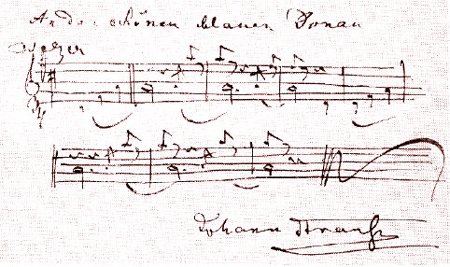 An der schönen blauen Donau
Walzer
Johann Strauss